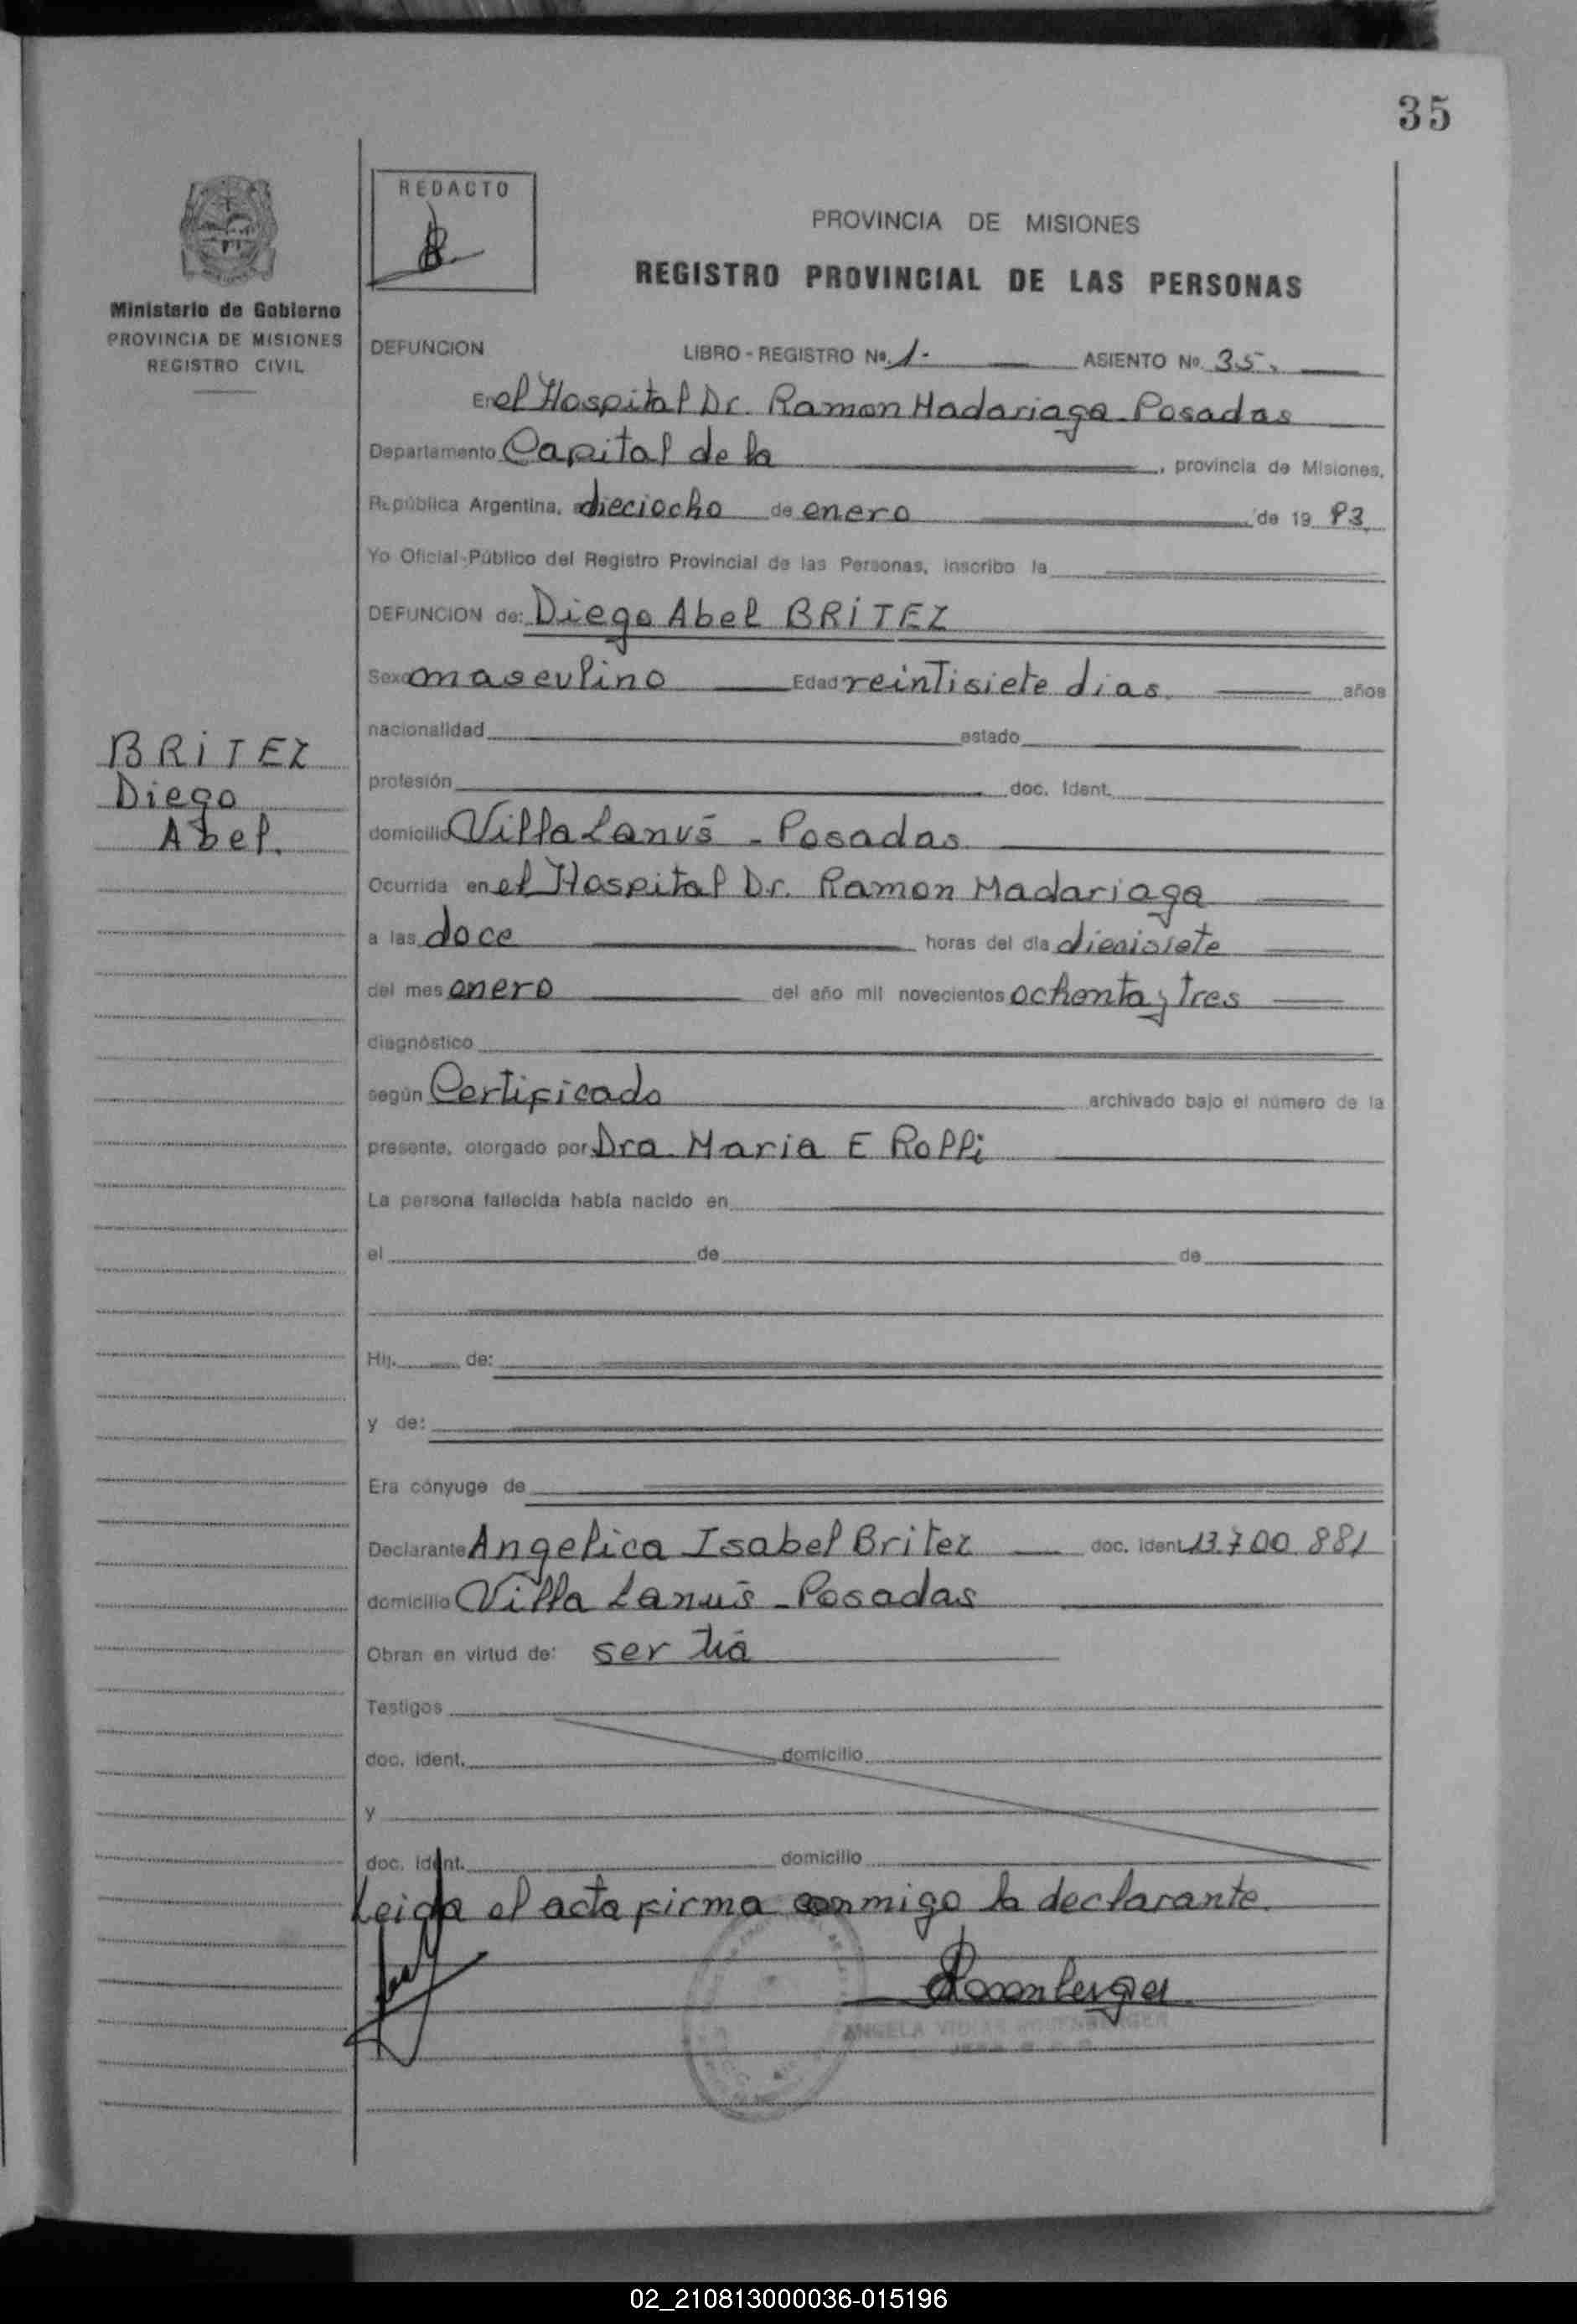 35
REDACTO
PROVINCIA DE MISIONES
REGISTRO PROVINCIAL DE LAS PERSONAS
Ministerio de Gobierno
PROVINCIA DE MISIONES
REGISTRO CIVIL
DEFUNCION LIBRO - REGISTRO Nº. 1.- ASIENTO Nº. 35.
En el Hospital Dr. Ramon Madariaga Posadas
Departamento Capital de la , provincia de Misiones,
República Argentina, a dieciocho de enero de 19 83.
Yo Oficial Público del Registro Provincial de las Personas, inscribo la
DEFUNCION de: Diego Abel BRITEZ
Sexo masculino Edad veintisiete dias. años
nacionalidad estado
BRITEZ
Diego
Abel.
profesión doc. Ident.
domicilio Villa Lanús - Posadas
Ocurrida en el Hospital Dr. Ramon Madariaga
a las doce horas del día diecisiete
del mes enero del año mil novecientos ochenta y tres
diagnóstico
según Certificado archivado bajo el número de la
presente, otorgado por Dra. Maria E Rolli
La persona fallecida había nacido en
el de de
Hij. de:
y de:
Era cónyuge de
Declarante Angelica Isabel Britez doc. ident. 13.700.881
domicilio Villa Lanús - Posadas
Obran en virtud de: ser tía
Testigos
doc. ident. domicilio
y
doc. ident. domicilio
Leida el acta firma conmigo la declarante.
Rosenberger
ANGELA ROSENBERGER
02_210813000036-015196